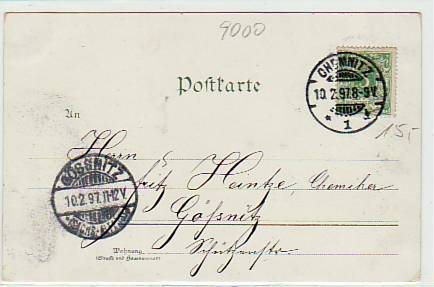 9000
CHEMNITZ
10.2.97.8-9V
* 1 *
Postkarte
15,-
An
Herrn
Fritz Heinke, Chemiker
GÖSSNITZ
10.2.97.11-12V
Gößnitz
Schützenstr.
Wohnung
(Straße und Hausnummer)